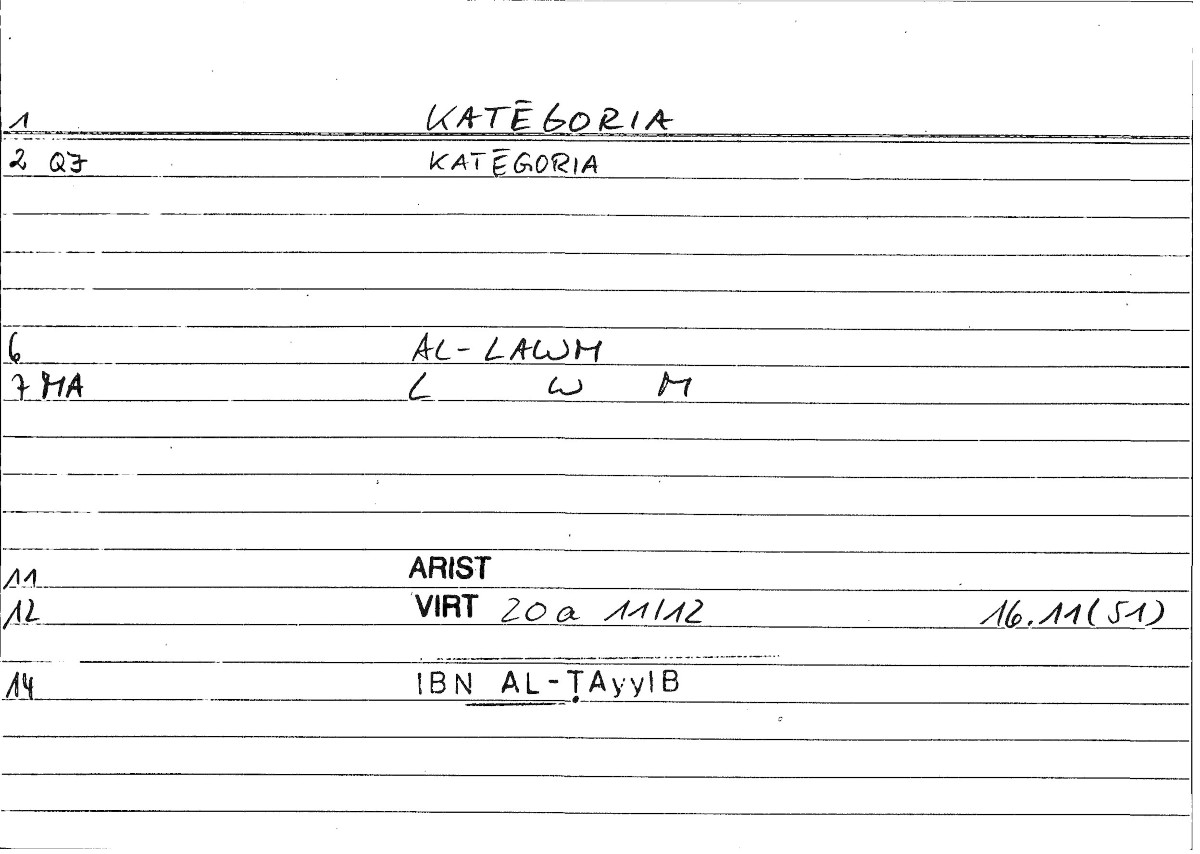 1 KATĒGORIA
2 QJ KATĒGORIA
6 AL-LAWM
7 MA L W M
11 ARIST
12 VIRT 20a 11/12 16.11(51)
14 IBN AL-ṬAyyIB